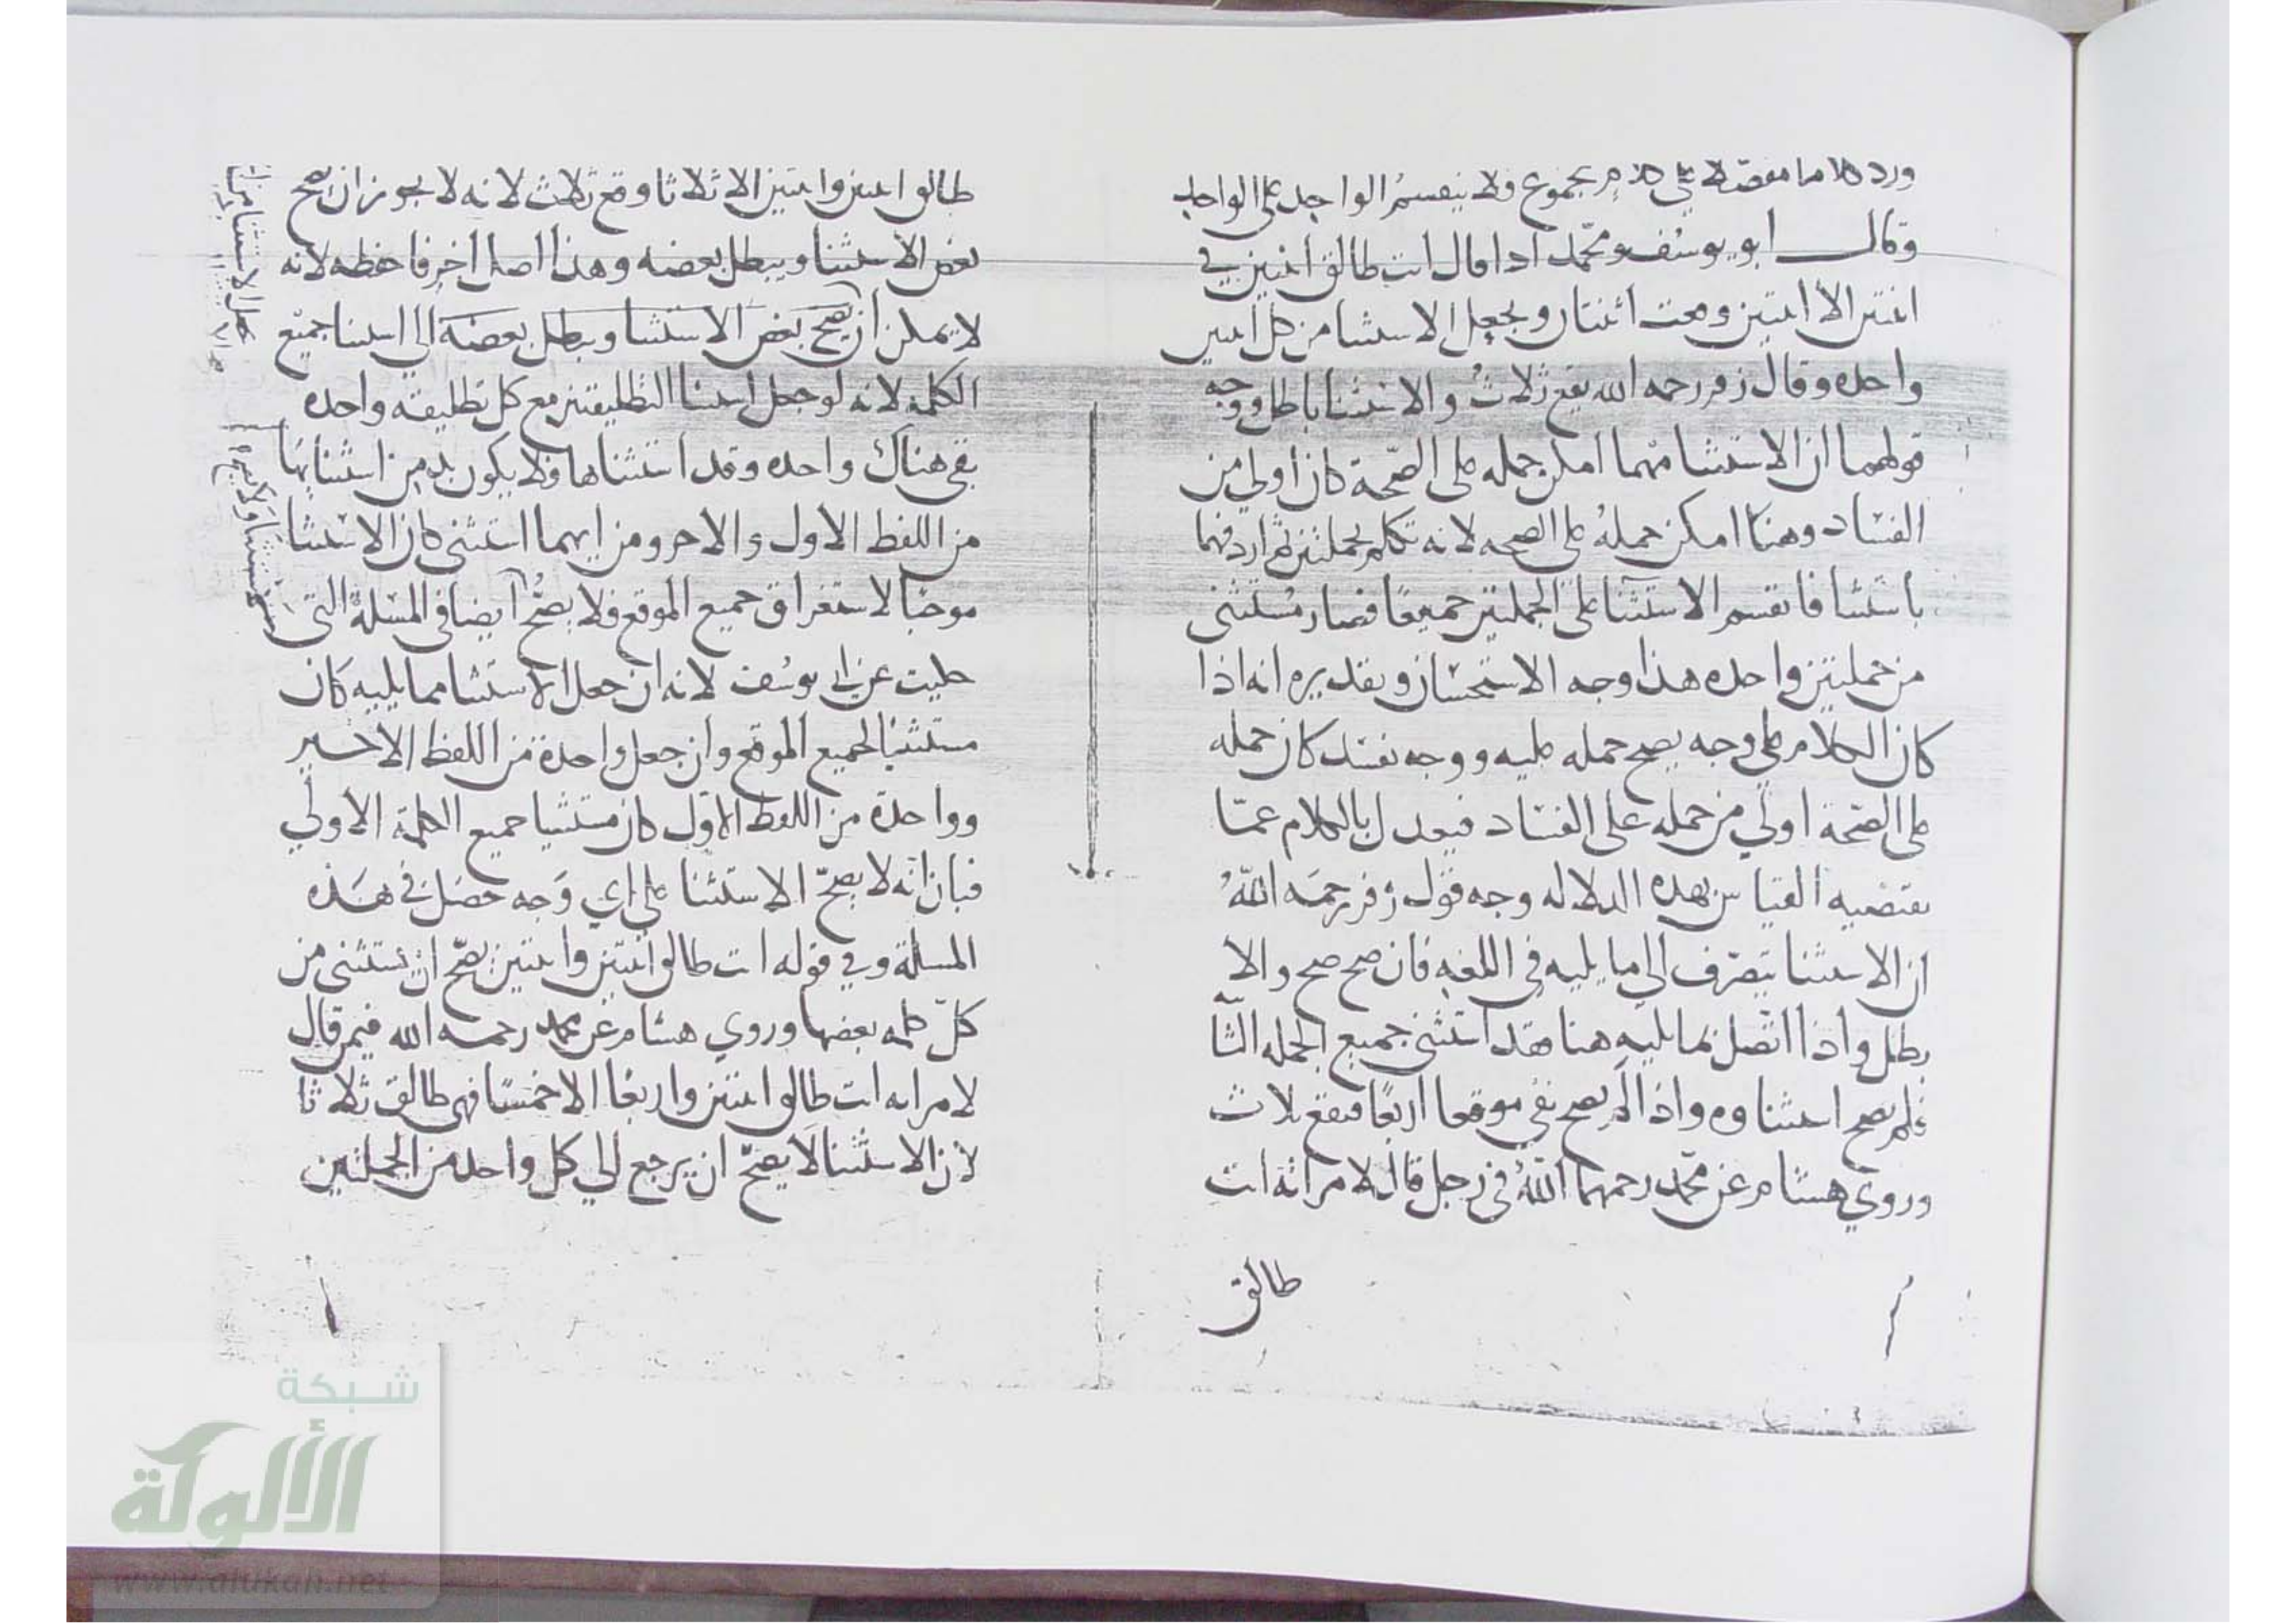 ورد كلاما مفصلا على كلام مجموع فلا ينقسم الواحد على الواحد
وقال ابو يوسف ومحمد اذا قال انت طالق اثنتين في
اثنتين الا اثنتين وقعت اثنتان ويجعل الاستثنا من كل اثنتين
واحده وقال زفر رحمه الله يقع ثلاث والاستثنا باطل ووجه
قولهما ان الاستثنا مهما امكن حمله على الصحة كان اولي من
الفساد وهنا امكن حمله على الصحه لانه تكلم بجملتين ثم اردفهما
باستثنا فانقسم الاستثنا على الجملتين جميعا فصار مستثنى
من جملتين واحده هذا وجه الاستحسان وتقديره انه اذا
كان الكلام على وجه يصح حمله عليه ووجه يفسد كان حمله
على الصحة اولي من حمله على الفساد فيعدل بالكلام عما
يقتضيه القياس بهذه الدلاله وجه قول زفر رحمه الله
ان الاستثنا يتصرف الي ما يليه في اللغه فان صح صح والا
بطل واذا اتصل بما يليه هنا فقد استثنى جميع الجمله الثا
فلم يصح استثناوه واذا لم يصح بقي موقعا اربعا فيقع ثلاث
وروي هشام عن محمد رحمهما الله في رجل قال لامراته انت
طالق
طالق اثنتين واثنتين الا ثلاثا وقع ثلاث لانه لا يجوز ان يصح
بعض الاستثنا ويبطل بعضه وهذا اصل اخر فاحفظه لانه
لا يمكن ان يصح بعض الاستثنا ويبطل بعضه الي استثنا جميع
الكلمه لانه لو جعل استثنا التطليقتين مع كل تطليقه واحده
بقي هناك واحده وقد استثناها فلا يكون بد من استثنايها
من اللفظ الاول والاخر ومن ايهما استثنى كان الاستثنا
موجبا لاستغراق جميع الموقع فلا يصح ايضا في المسئلة التي
حكيت عن ابي يوسف لانه ان جعل الاستثنا مما يليه كان
مستثنيا لجميع الموقع وان جعل واحدة من اللفظ الاخير
وواحدة من اللفظ الاول كان مستثنيا جميع الكلمة الاولي
فبان انه لا يصح الاستثنا على اي وجه حصل في هذه
المسئلة وفي قوله انت طالق اثنتين واثنتين يصح ان يستثنى من
كل كلمه بعضها وروي هشام عن محمد رحمه الله فيمن قال
لامراته انت طالق اثنتين واربعا الا خمسا فهي طالق ثلاثا
لان الاستثنا لا يصح ان يرجع الي كل واحده من الجملتين
شبكة
الألوكة
www.alukah.net